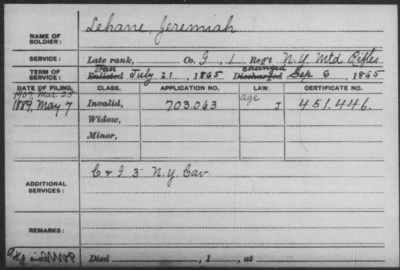 Lehane, Jeremiah
NAME OF SOLDIER:
SERVICE: Late rank, Co. I, 1 Reg't N.Y. Mtd Rifles
TERM OF SERVICE: Tran Enlisted July 21, 1865 changed Discharged Sep 6, 1865
DATE OF FILING. CLASS. APPLICATION NO. LAW. CERTIFICATE NO.
1907, Mar 25
1889, May 7 Invalid, 703.043 age I 451.446.
Widow,
Minor,
ADDITIONAL SERVICES: C & I 3" N.Y. Cav.
REMARKS:
Died , 1 , at